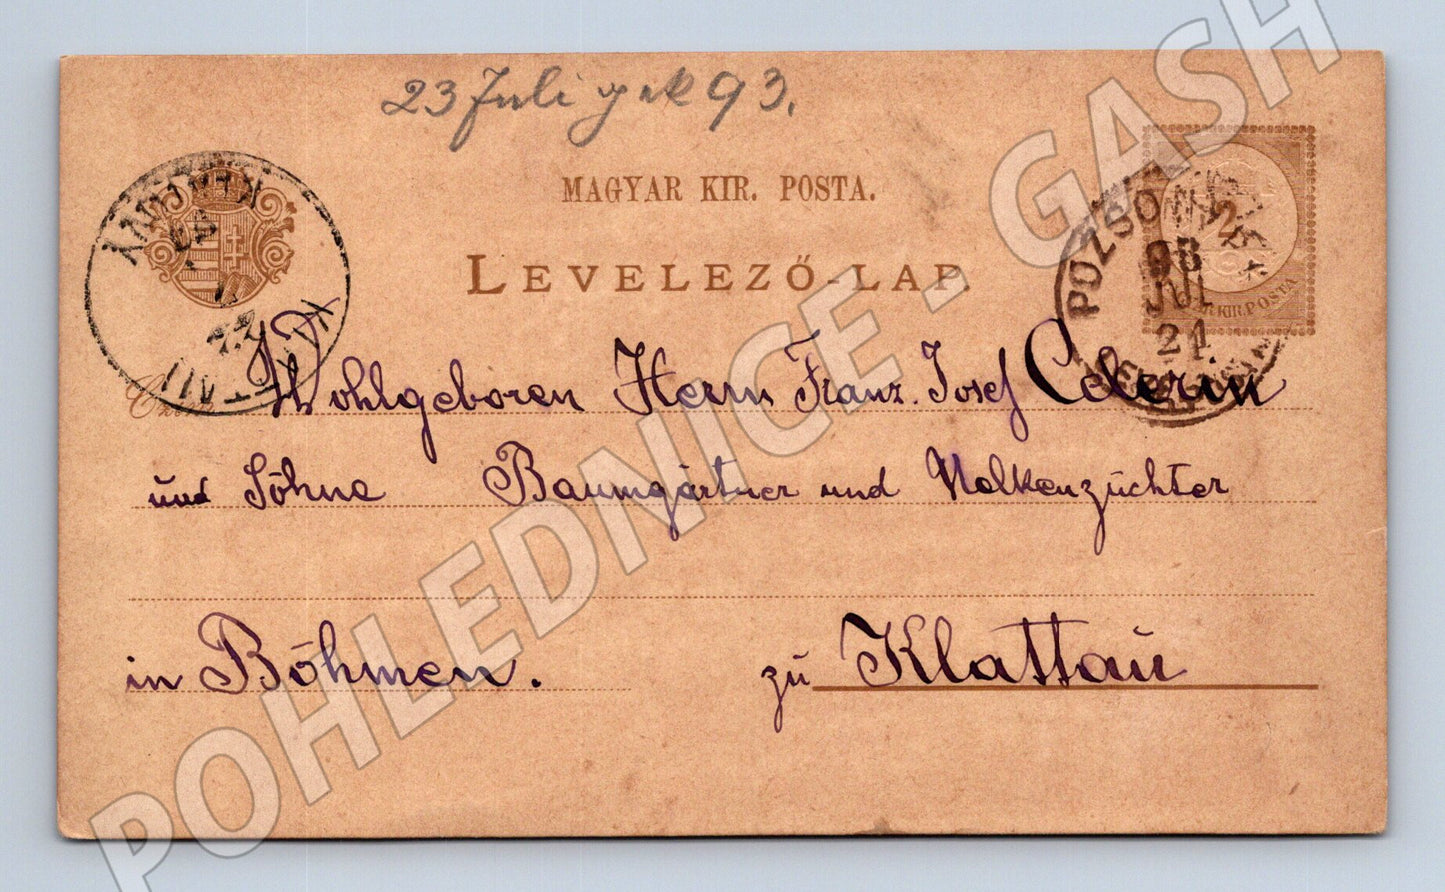 23 Juli 93.
MAGYAR KIR. POSTA.
LEVELEZŐ-LAP.
2
KIR. POSTA
POZSONY
93
JUL
21
KLATTAU
Wohlgeboren Herrn Franz. Josef Celerin
und Söhne Baumgärtner und Nelkenzüchter
in Böhmen. zu Klattau
POHLEDNICE - GASH